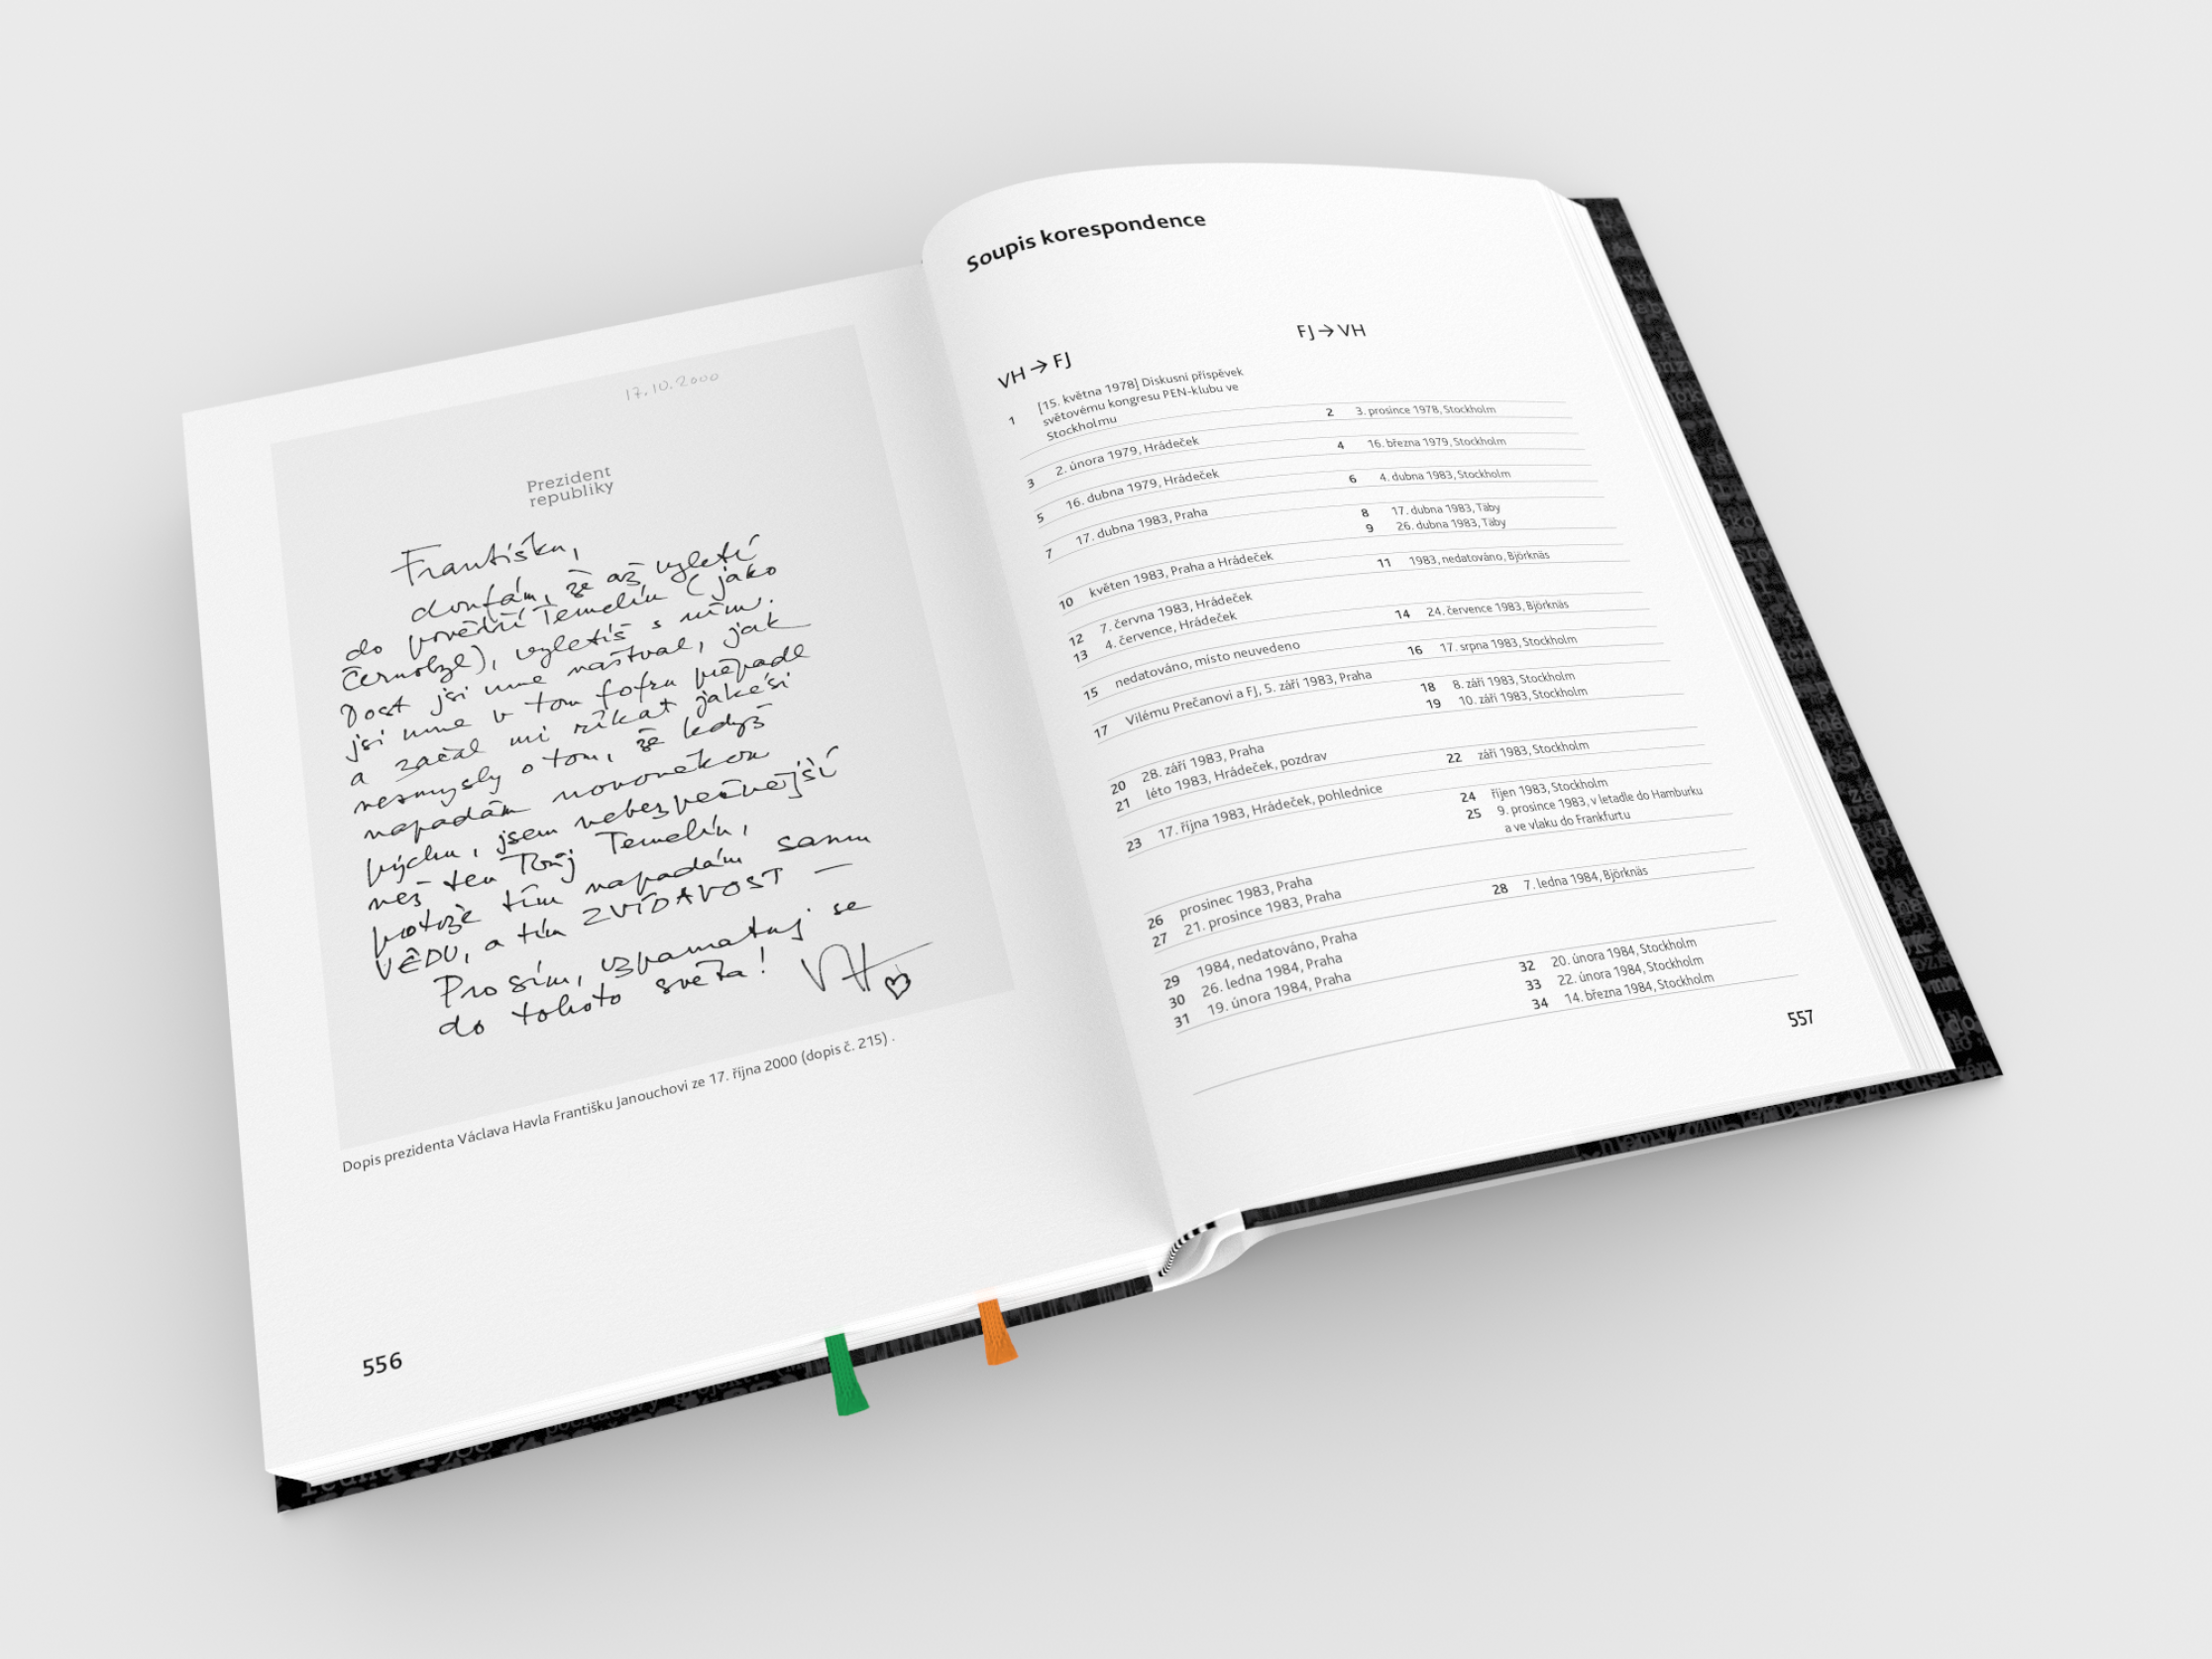 17.10.2000
Prezident
republiky
Františku,
doufám, že až vyletí
do povětří Temelín (jako
Černobyl), vyletíš s ním.
Dost jsi mne naštval, jak
jsi mne v tom fofru přepadl
a začal mi říkat jakési
nesmysly o tom, že když
napadám novověkou
pýchu, jsem nebezpečnější
než ten Tvůj Temelín,
protože tím napadám samu
VĚDU, a tím ZVÍDAVOST —
Prosím, vzpamatuj se
do tohoto světa!
VH
Dopis prezidenta Václava Havla Františku Janouchovi ze 17. října 2000 (dopis č. 215) .
556
Soupis korespondence
VH → FJ
FJ → VH
1 [15. května 1978] Diskusní příspěvek
světovému kongresu PEN-klubu ve
Stockholmu
2 3. prosince 1978, Stockholm
3 2. února 1979, Hrádeček
4 16. března 1979, Stockholm
5 16. dubna 1979, Hrádeček
6 4. dubna 1983, Stockholm
7 17. dubna 1983, Praha
8 17. dubna 1983, Täby
9 26. dubna 1983, Täby
10 květen 1983, Praha a Hrádeček
11 1983, nedatováno, Björknäs
12 7. června 1983, Hrádeček
13 4. července, Hrádeček
14 24. července 1983, Björknäs
15 nedatováno, místo neuvedeno
16 17. srpna 1983, Stockholm
17 Vilému Prečanovi a FJ, 5. září 1983, Praha
18 8. září 1983, Stockholm
19 10. září 1983, Stockholm
20 28. září 1983, Praha
21 léto 1983, Hrádeček, pozdrav
22 září 1983, Stockholm
23 17. října 1983, Hrádeček, pohlednice
24 říjen 1983, Stockholm
25 9. prosince 1983, v letadle do Hamburku
a ve vlaku do Frankfurtu
26 prosinec 1983, Praha
27 21. prosince 1983, Praha
28 7. ledna 1984, Björknäs
29 1984, nedatováno, Praha
30 26. ledna 1984, Praha
31 19. února 1984, Praha
32 20. února 1984, Stockholm
33 22. února 1984, Stockholm
34 14. března 1984, Stockholm
557